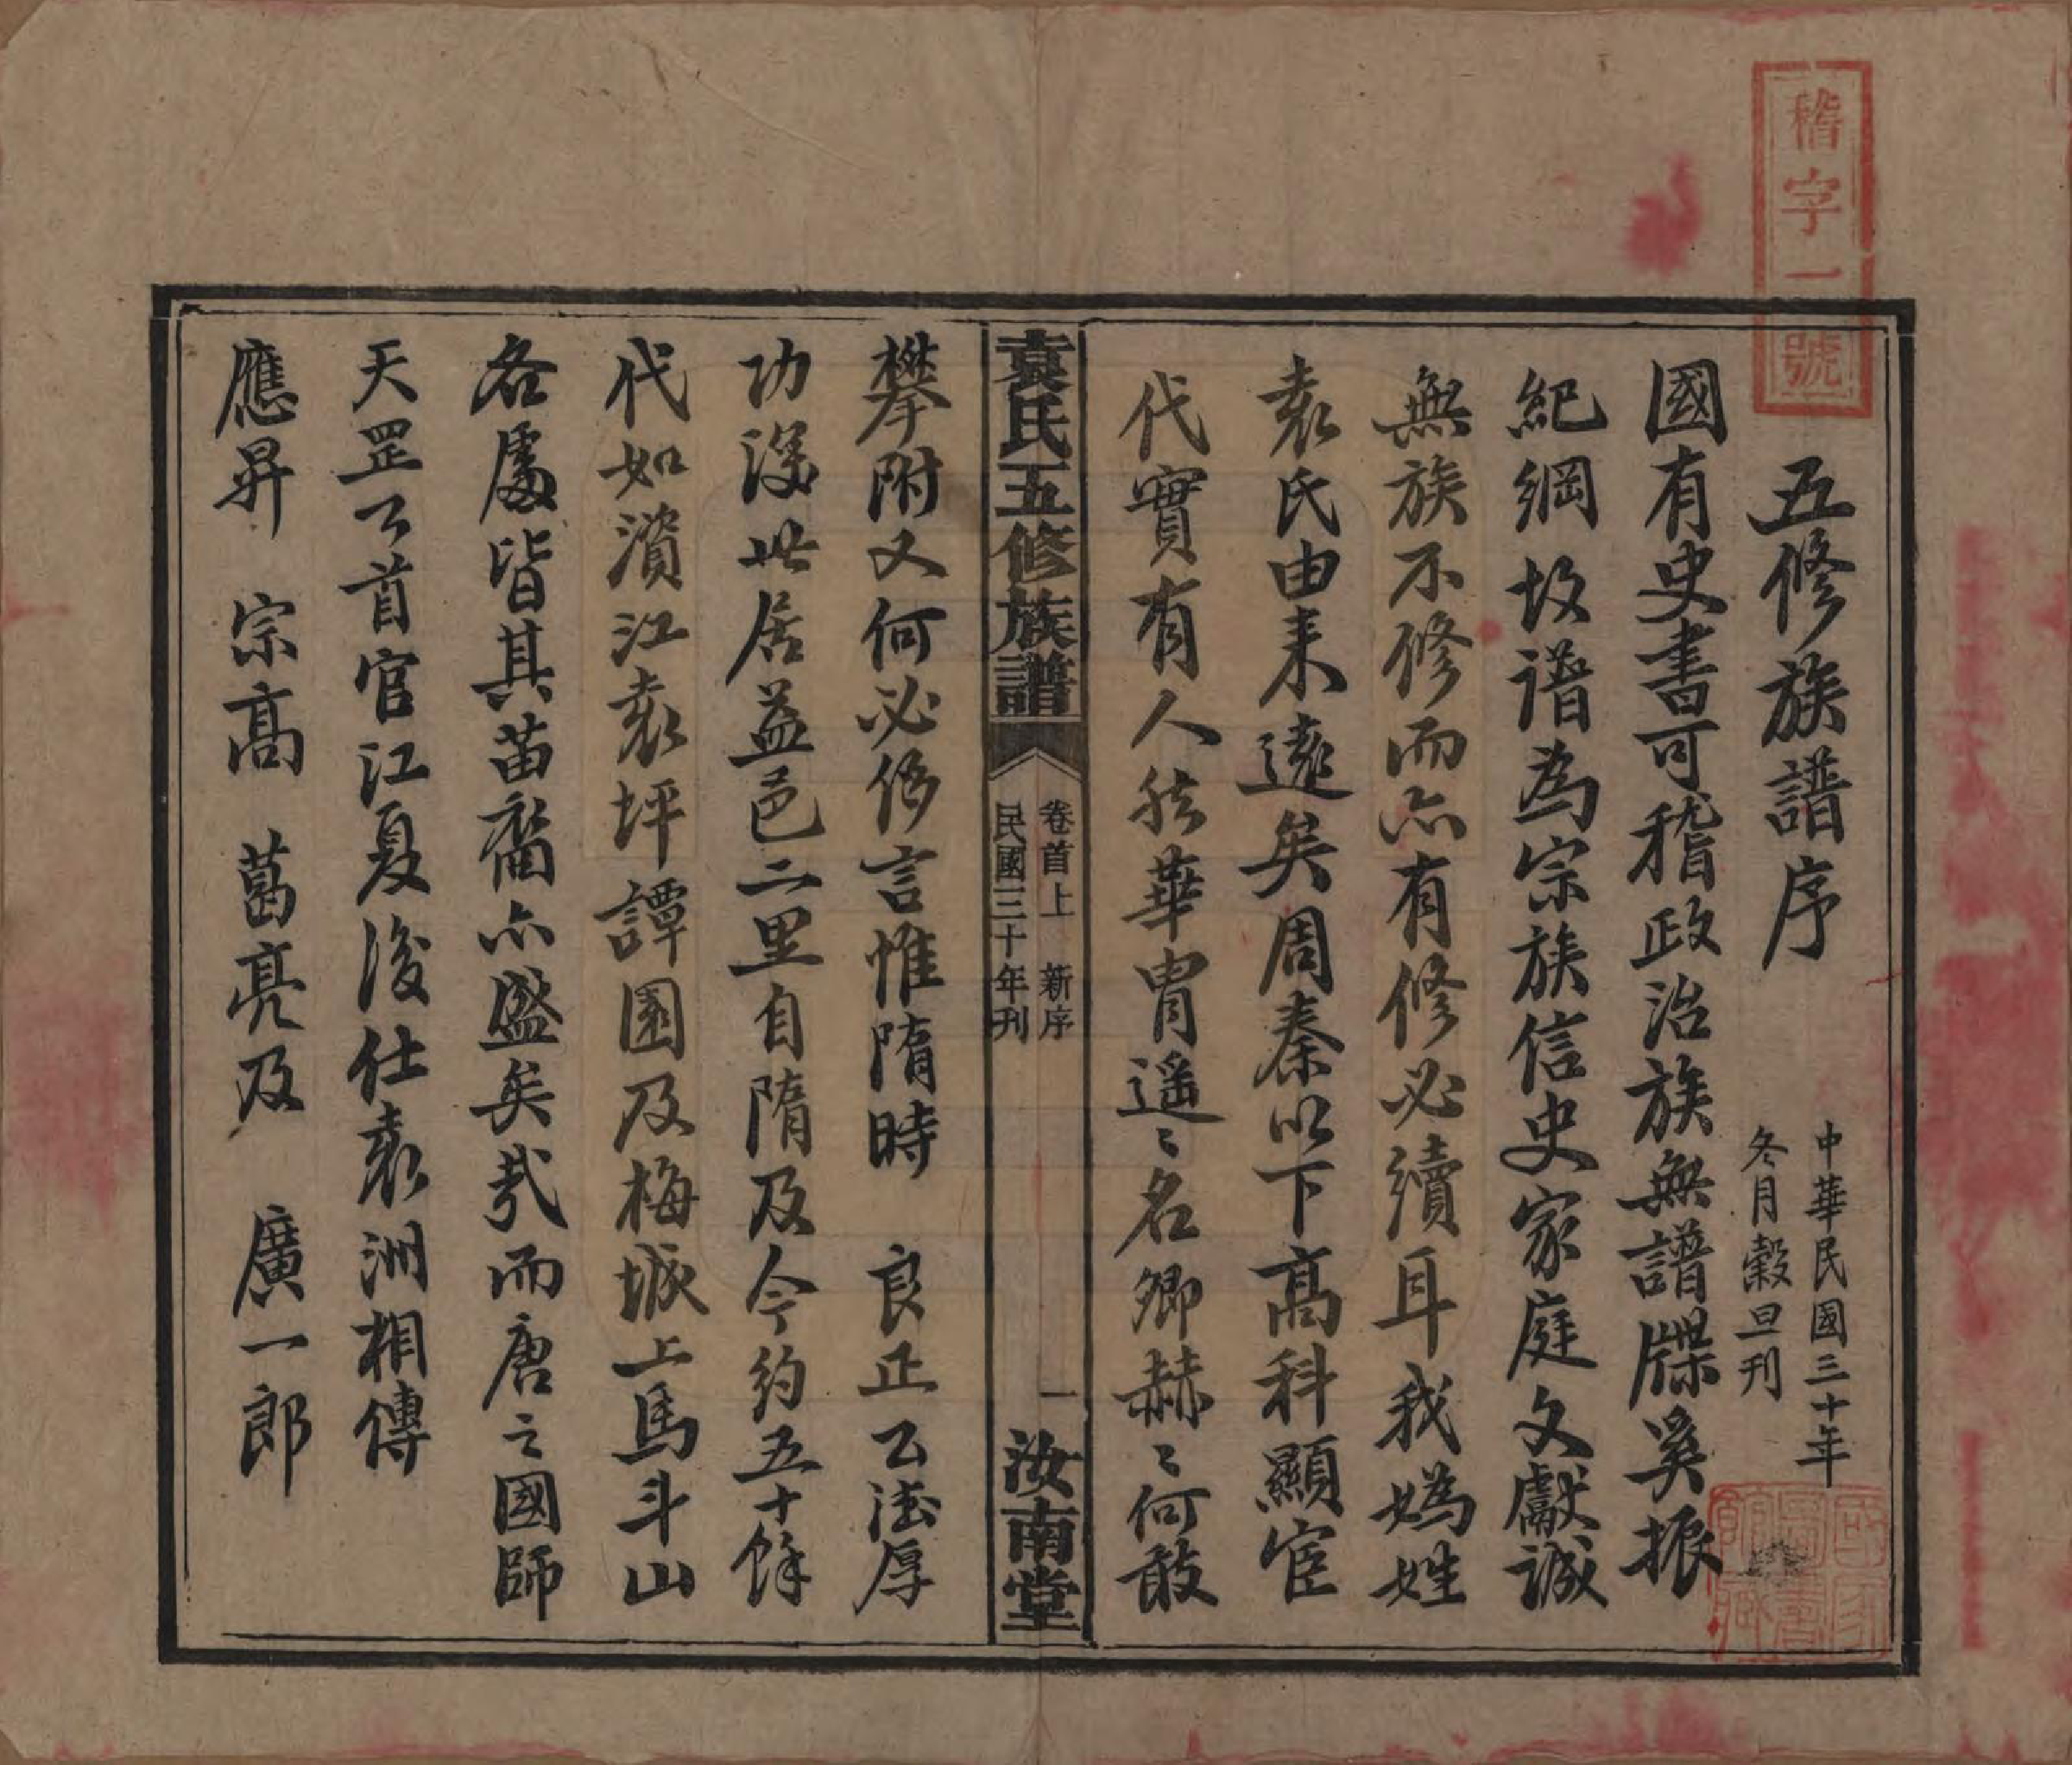 稽字一號
五修族譜序
中華民國三十年
冬月穀旦刊
國有史書可稽政治族無譜牒奚振
紀綱故譜為宗族信史家庭文獻誠
無族不修而亦有修必續耳我媯姓
袁氏由来遠矣周秦以下高科顯宦
代實有人然華胄遥〻名卿赫〻何敢
袁氏五修族譜
卷首上 新序
民國三十年刊
一
汝南堂
攀附又何必侈言惟隋時 良正公德厚
功深世居益邑二里自隋及今約五十餘
代如濱江袁坪譚園及梅城上馬斗山
各處皆其苗裔亦盛矣哉而唐之國師
天罡公首官江夏後仕袁洲相傳
應昇 宗高 葛亮及 廣一郎